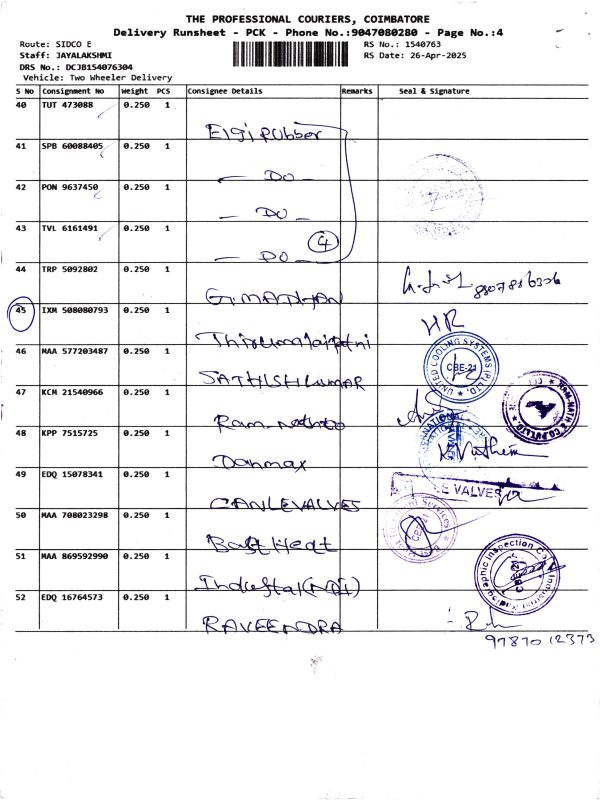 THE PROFESSIONAL COURIERS, COIMBATORE
Delivery Runsheet - PCK - Phone No.:9047080280 - Page No.:4
Route: SIDCO E
RS No.: 1540763
Staff: JAYALAKSHMI
RS Date: 26-Apr-2025
DRS No.: DCJB154076304
Vehicle: Two Wheeler Delivery
S No Consignment No Weight PCS Consignee Details Remarks Seal & Signature
40 TUT 473088 0.250 1
Elgi Rubber
41 SPB 60088405 0.250 1
— DO —
42 PON 9637450 0.250 1
— DO —
43 TVL 6161491 0.250 1
— DO — 4
44 TRP 5092802 0.250 1
G. MATHAN
8807886306
45 IXM 508080793 0.250 1
HR
46 MAA 577203487 0.250 1
UNITED COOLING SYSTEMS (P) LTD.
CBE-21
SATHISH KUMAR
47 KCM 21540966 0.250 1
RAM-NATH & CO.PVT.LTD.
48 KPP 7515725 0.250 1
Danmax
49 EDQ 15078341 0.250 1
VALVES
CANLEVALVES
50 MAA 708023298 0.250 1
CBE-21
51 MAA 869592990 0.250 1
52 EDQ 16764573 0.250 1
RAVEENDRA